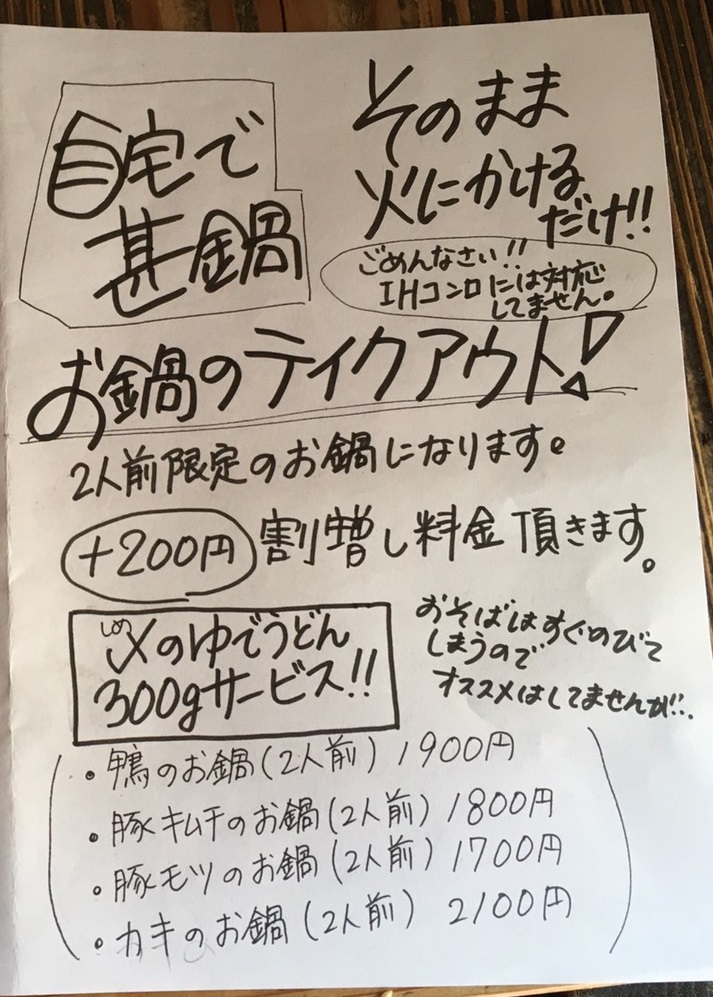 自宅で
甚鍋
そのまま
火にかける
だけ!!
ごめんなさい!!
IHコンロには対応
してません。
お鍋のテイクアウト!
2人前限定のお鍋になります。
+200円 割増し料金頂きます。
しめ
〆のゆでうどん
300gサービス!!
おそばはすぐのびて
しまうので
オススメはしてませんが!!..
・鴨のお鍋(2人前) 1900円
・豚キムチのお鍋(2人前) 1800円
・豚モツのお鍋(2人前) 1700円
・カキのお鍋(2人前) 2100円